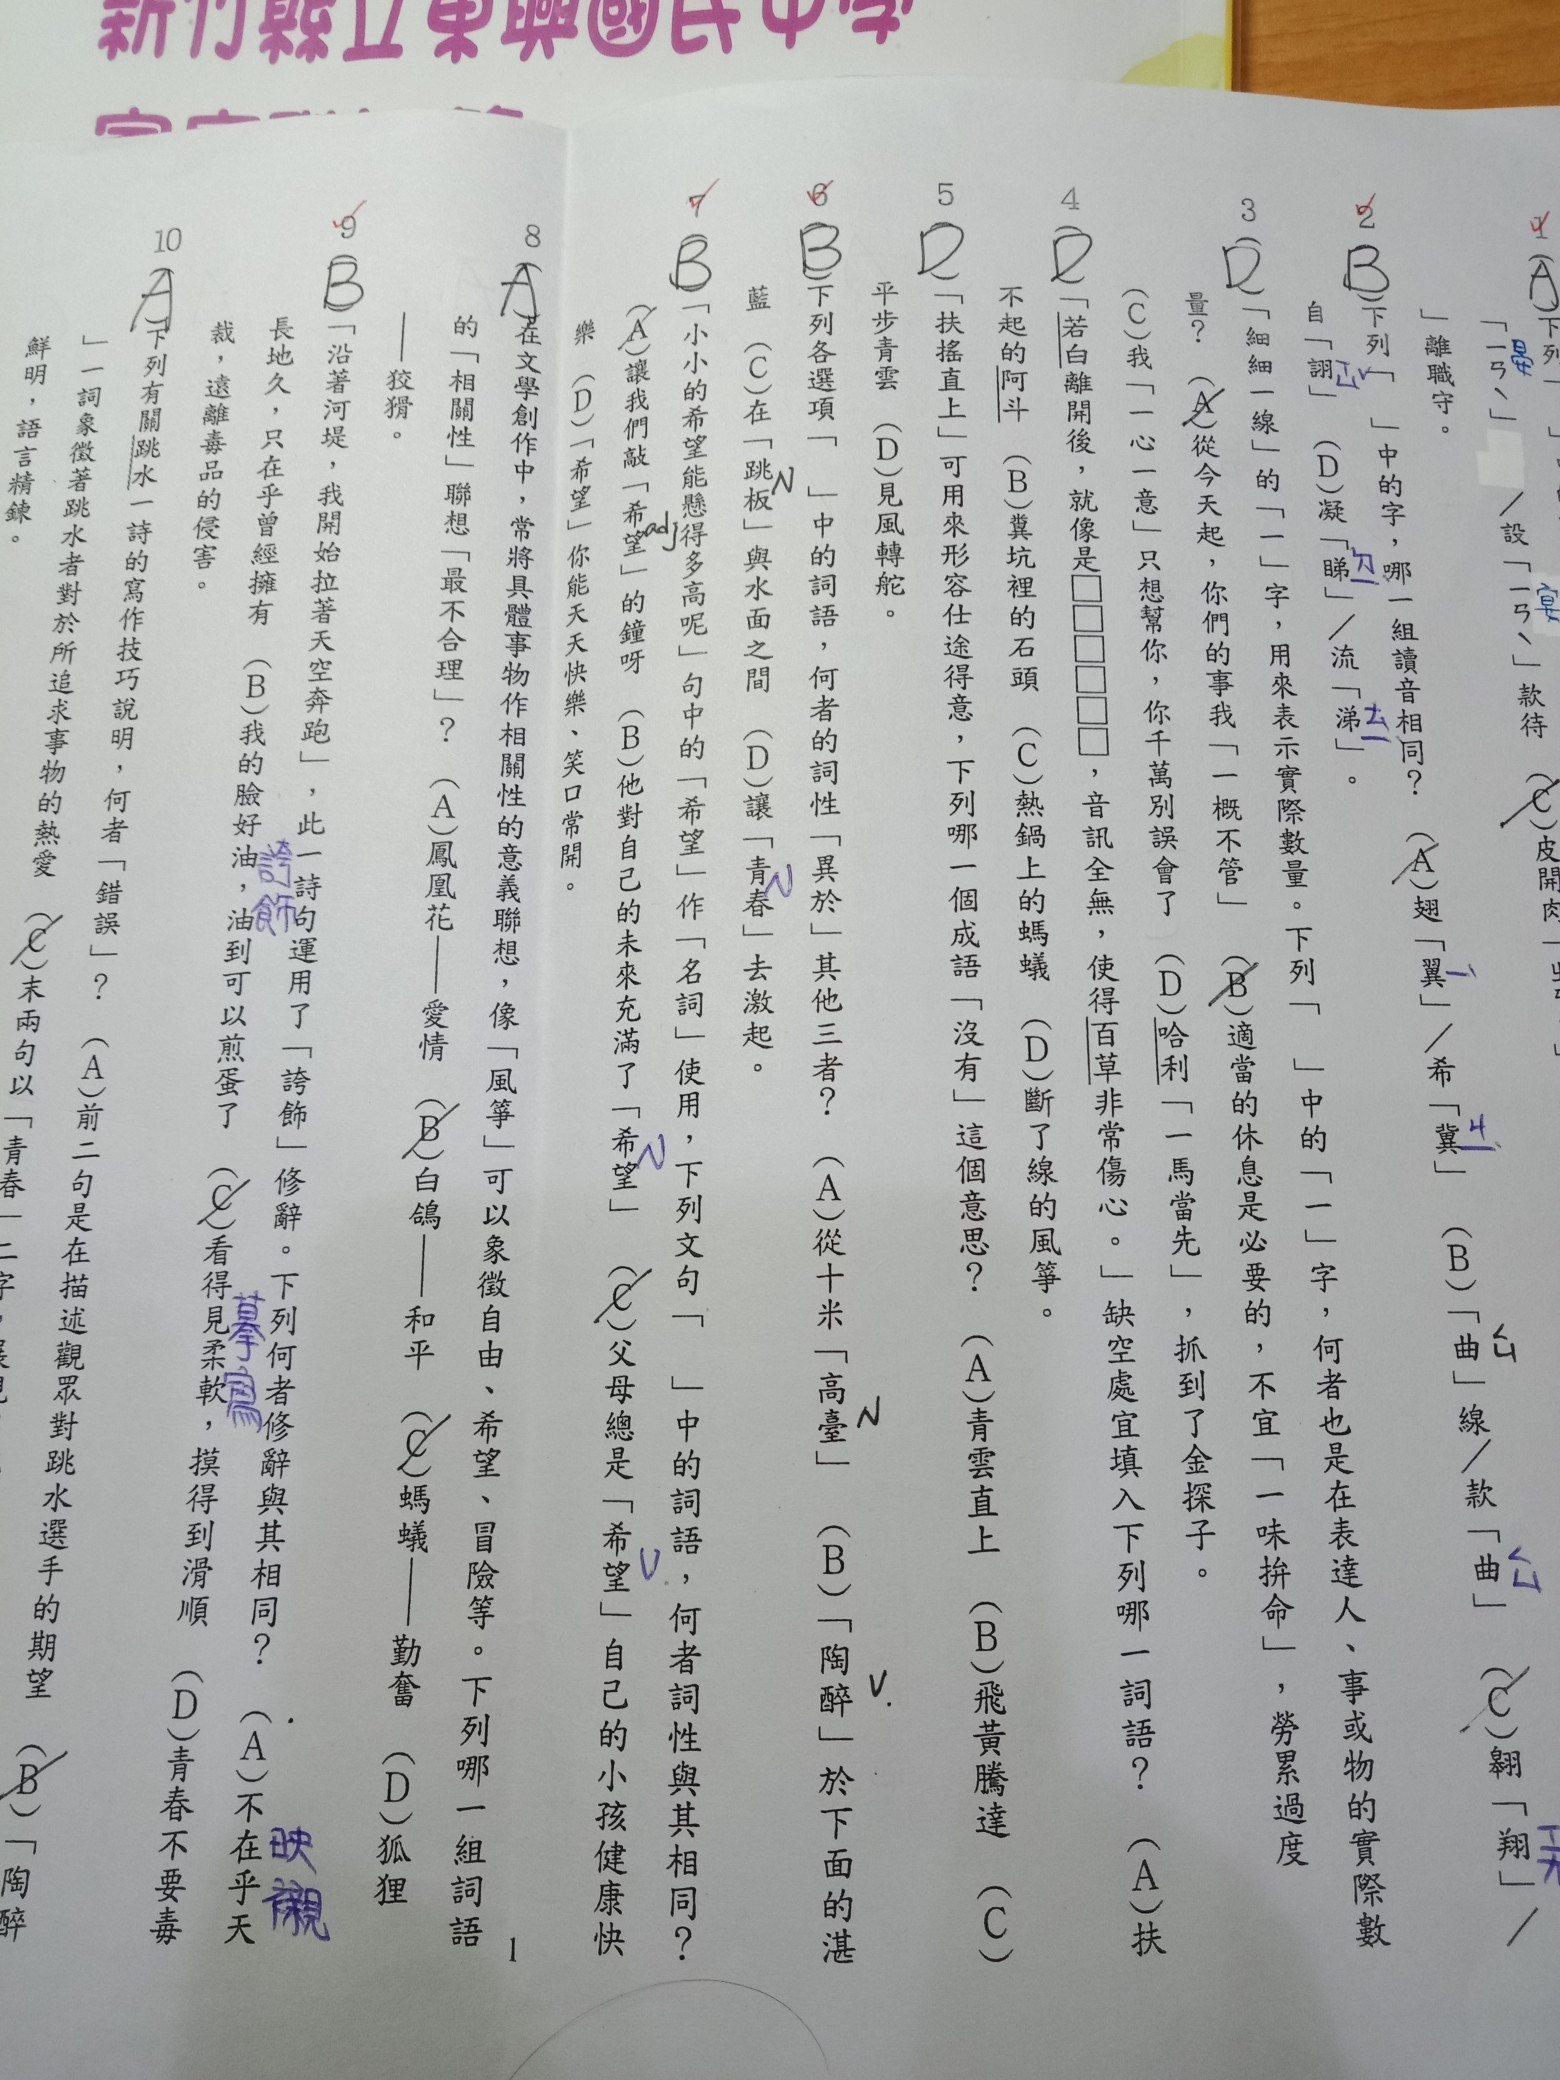 新竹縣立東興國民中學
1
(A)
「ㄧㄢˋ」
晏
／設「ㄧㄢˋ」款待
宴
(C)皮開肉
」離職守。
2
(B)下列「 」中的字，哪一組讀音相同？ (A)翅「翼」／希「冀」 (B)「曲」線／款「曲」 (C)翱「翔」／
ㄧˋ
ㄐㄧˋ
ㄑㄩ
ㄑㄩ
自「詡」 (D)凝「睇」／流「涕」。
3
(D)「細細一線」的「一」字，用來表示實際數量。下列「 」中的「一」字，何者也是在表達人、事或物的實際數
量？ (A)從今天起，你們的事我「一概不管」 (B)適當的休息是必要的，不宜「一味拚命」，勞累過度
(C)我「一心一意」只想幫你，你千萬別誤會了 (D)哈利「一馬當先」，抓到了金探子。
4
(D)「若白離開後，就像是□□□□□□，音訊全無，使得百草非常傷心。」缺空處宜填入下列哪一詞語？ (A)扶
不起的阿斗 (B)糞坑裡的石頭 (C)熱鍋上的螞蟻 (D)斷了線的風箏。
5
(D)「扶搖直上」可用來形容仕途得意，下列哪一個成語「沒有」這個意思？ (A)青雲直上 (B)飛黃騰達 (C)
平步青雲 (D)見風轉舵。
6
(B)下列各選項「 」中的詞語，何者的詞性「異於」其他三者？ (A)從十米「高臺」 (B)「陶醉」於下面的湛
N
V.
藍 (C)在「跳板」與水面之間 (D)讓「青春」去激起。
N
N
7
(B)「小小的希望能懸得多高呢」句中的「希望」作「名詞」使用，下列文句「 」中的詞語，何者詞性與其相同？
(A)讓我們敲「希望」的鐘呀 (B)他對自己的未來充滿了「希望」 (C)父母總是「希望」自己的小孩健康快
adj
N
V.
樂 (D)「希望」你能天天快樂、笑口常開。
8
(A)在文學創作中，常將具體事物作相關性的意義聯想，像「風箏」可以象徵自由、希望、冒險等。下列哪一組詞語
的「相關性」聯想「最不合理」？ (A)鳳凰花——愛情 (B)白鴿——和平 (C)螞蟻——勤奮 (D)狐狸
——狡猾。
9
(B)「沿著河堤，我開始拉著天空奔跑」，此一詩句運用了「誇飾」修辭。下列何者修辭與其相同？ (A)不在乎天
長地久，只在乎曾經擁有 (B)我的臉好油，油到可以煎蛋了 (C)看得見柔軟，摸得到滑順 (D)青春不要毒
誇飾
摹寫
映襯
裁，遠離毒品的侵害。
10
(A)下列有關跳水一詩的寫作技巧說明，何者「錯誤」？ (A)前二句是在描述觀眾對跳水選手的期望 (B)「陶醉
」一詞象徵著跳水者對於所追求事物的熱愛 (C)末兩句以「青春」二字，
鮮明，語言精鍊。
1